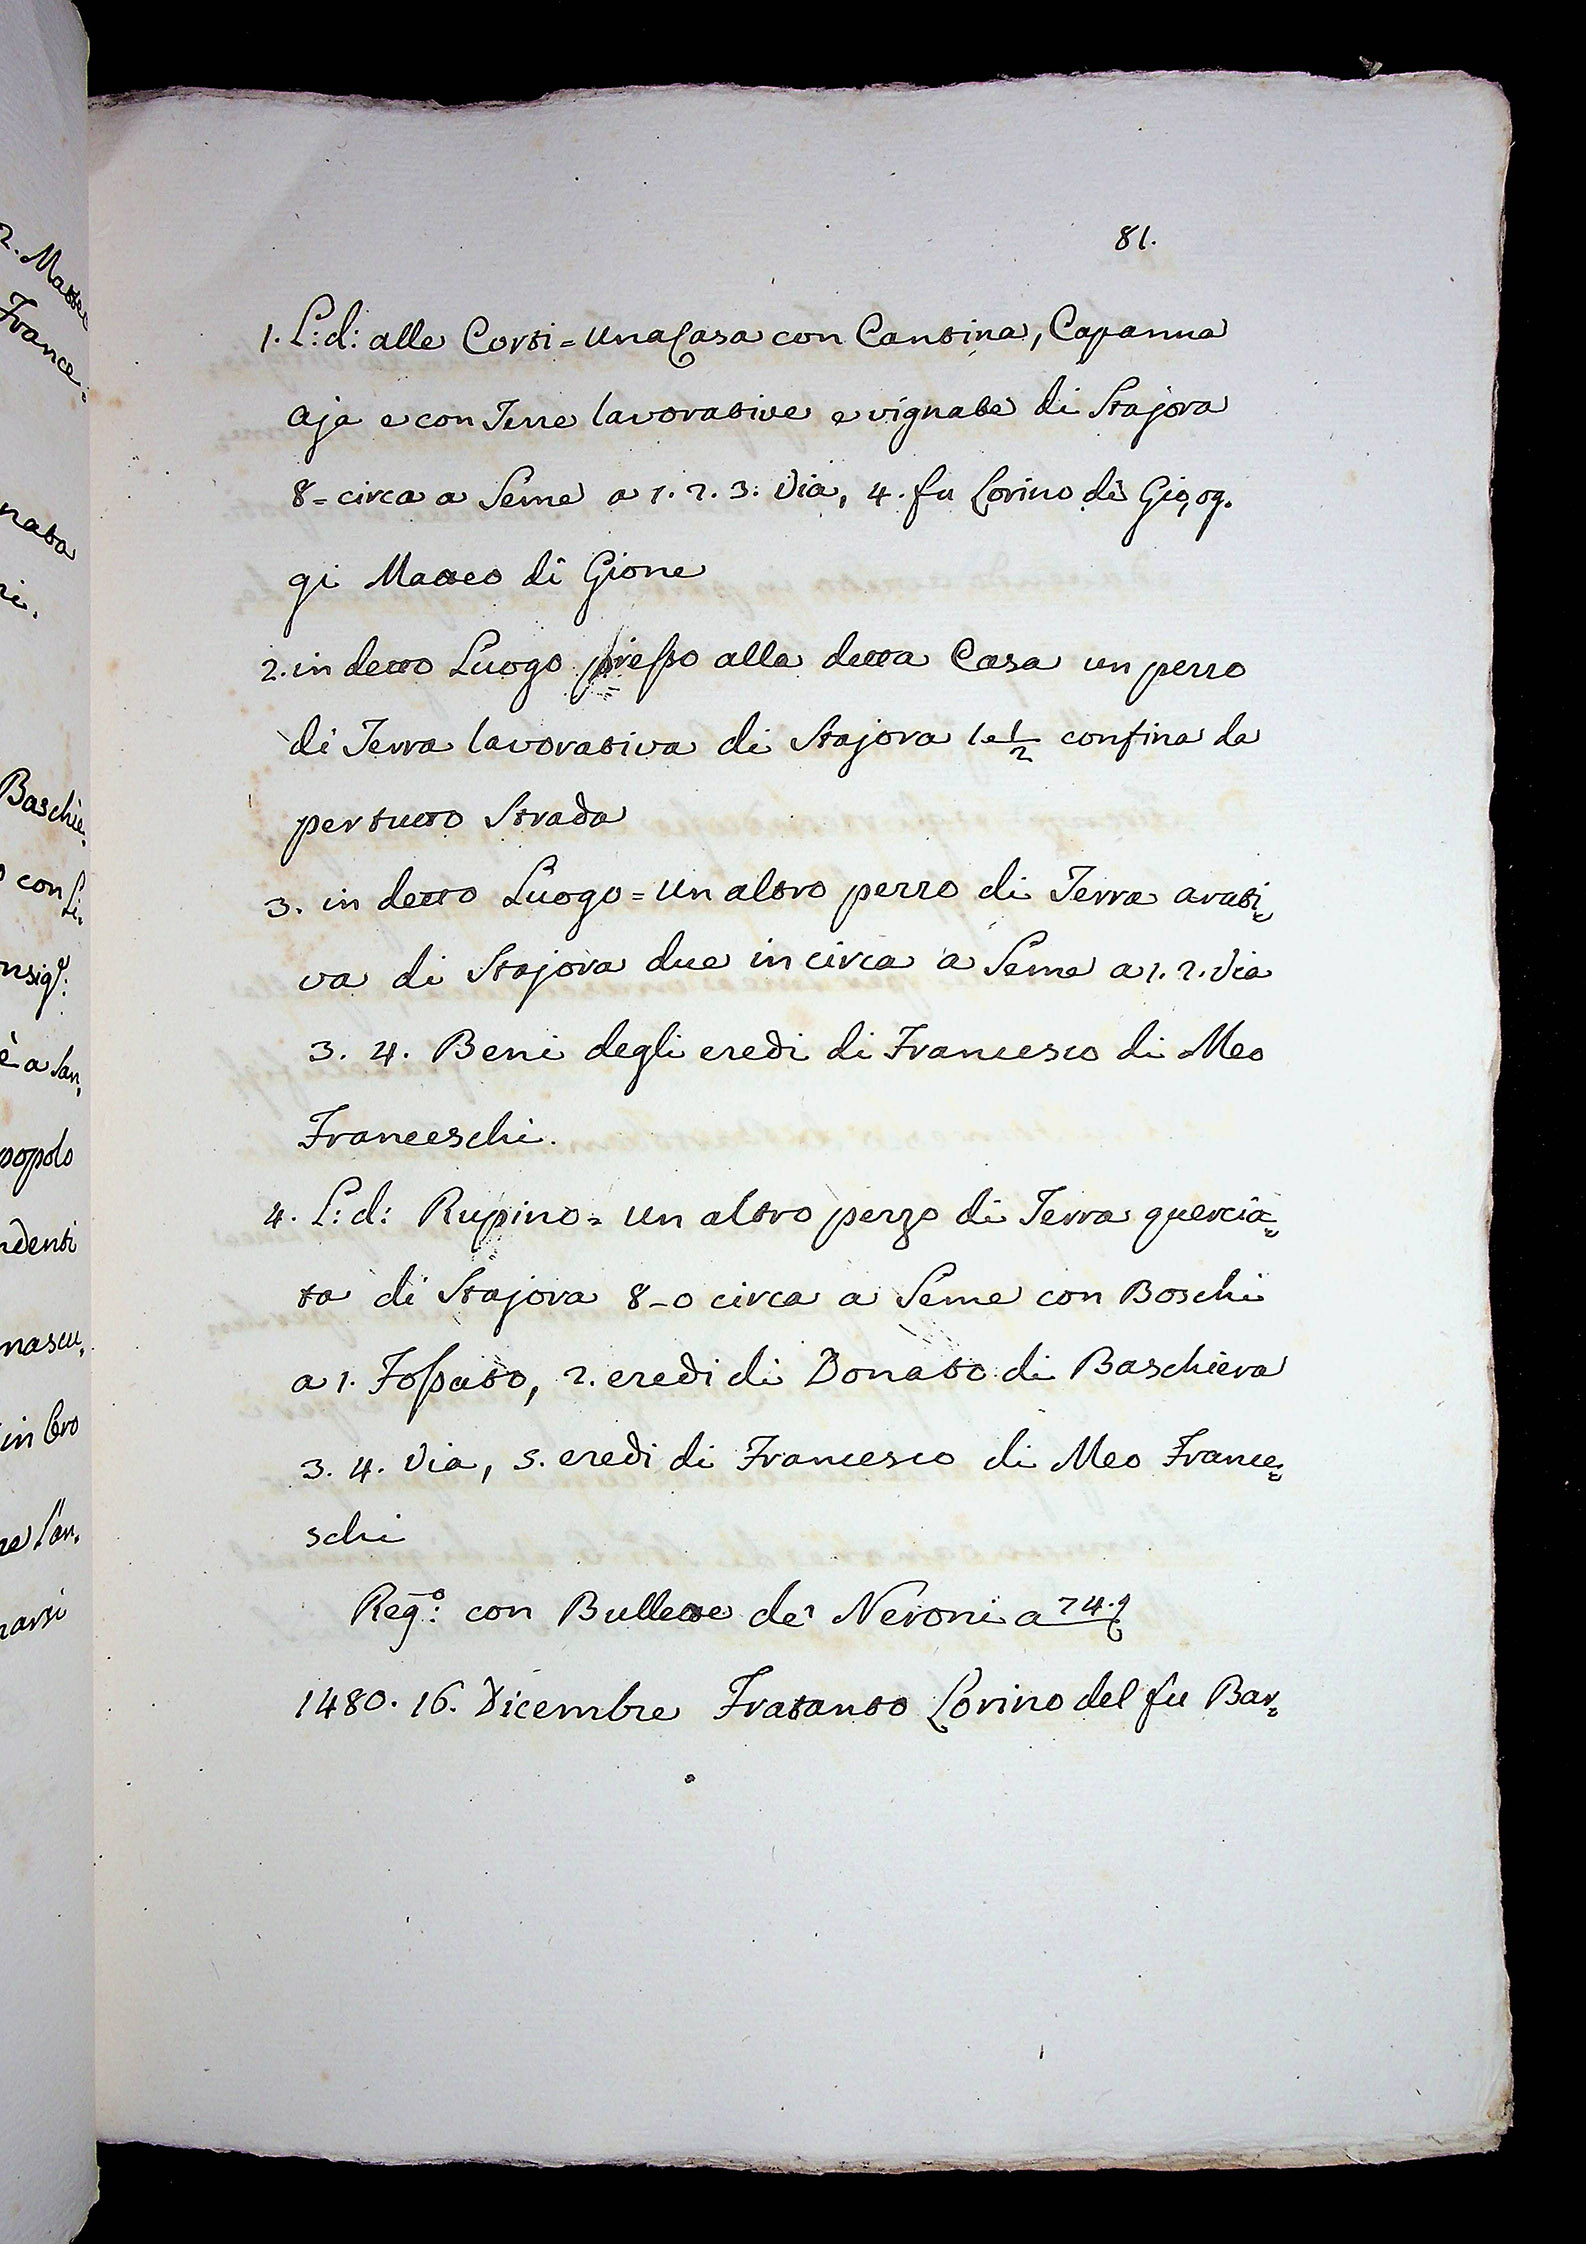 81.
1. L: d: alle Corti = una Casa con Cantina, Capanna
Aja e con Terre lavorative e vignate di Stajora
8 = circa a Seme a 1. 2. 3. Via, 4. fu Lorino di Gio, og-
gi Matteo di Gione
2. in detto Luogo presso alla detta Casa un pezzo
di Terra lavorativa di Stajora 1 e 1/2 confina da
per tutto Strada
3. in detto Luogo = un altro pezzo di Terra arati=
va di Stajora due in circa a Seme a 1. 2. Via
3. 4. Beni degli eredi di Francesco di Meo
Franceschi.
4. L: d: Rupino = un altro pezzo di Terra quercia=
ta di Stajora 8 - 0 circa a Seme con Boschi
a 1. Fossato, 2. eredi di Donato di Baschiera
3. 4. Via, 5. eredi di Francesco di Meo France=
schi
Reg.º: con Bullette de' Neroni a 74.
1480. 16. Dicembre Fratanto Lorino del fu Bar=
2. Matteo
France=
nata
ri.
Baschie=
con Li=
nsig.e:
è a San=
popolo
ndenti
mascu=
in Cro
narsi